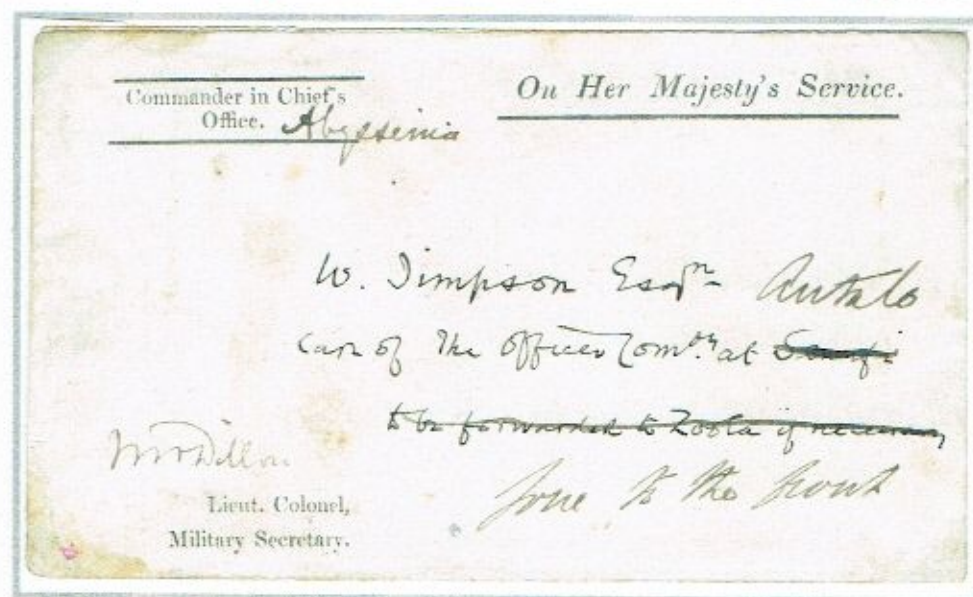 Commander in Chief's
Office. Abyssinia
On Her Majesty's Service.
W. Simpson Esqr. Antalo
care of the officer Comdg at Senafe
to be forwarded to Zoola if necessary
gone to the front
M Dillon
Lieut. Colonel,
Military Secretary.